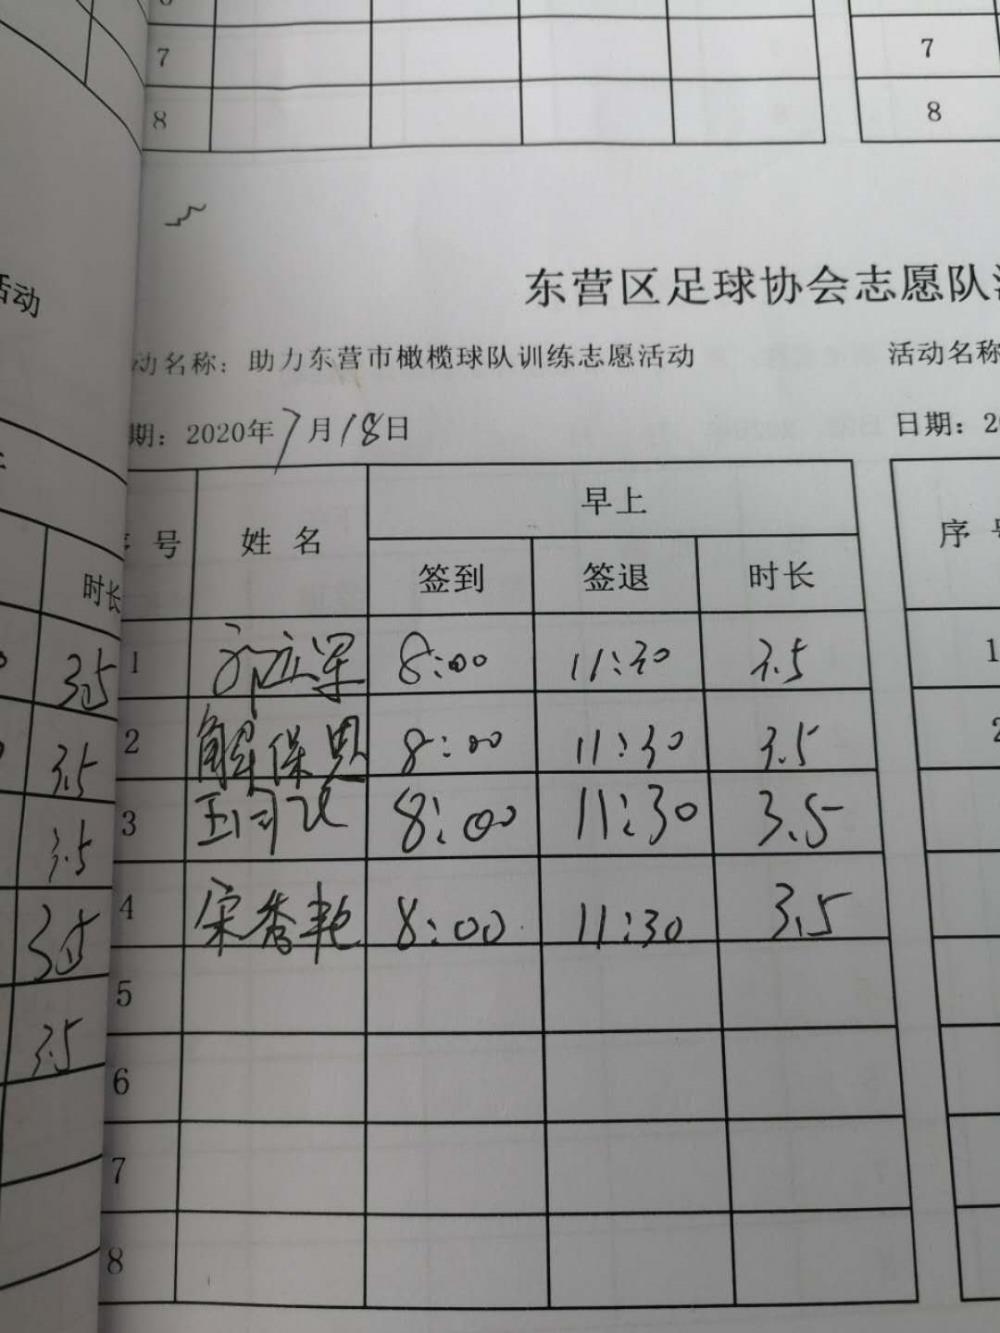 7
7
8
8
活动
东营区足球协会志愿队
动名称：助力东营市橄榄球队训练志愿活动
活动名称
期：2020年7月18日
日期：2
号 姓名 早上
序
签到 签退 时长
时长
3.5
1 8:00 11:30 3.5
1
3.5
2 解保恩 8:00 11:30 3.5
2
3.5
3 8:00 11:30 3.5
3.5
4 宋秀艳 8:00 11:30 3.5
3.5
5
6
7
8